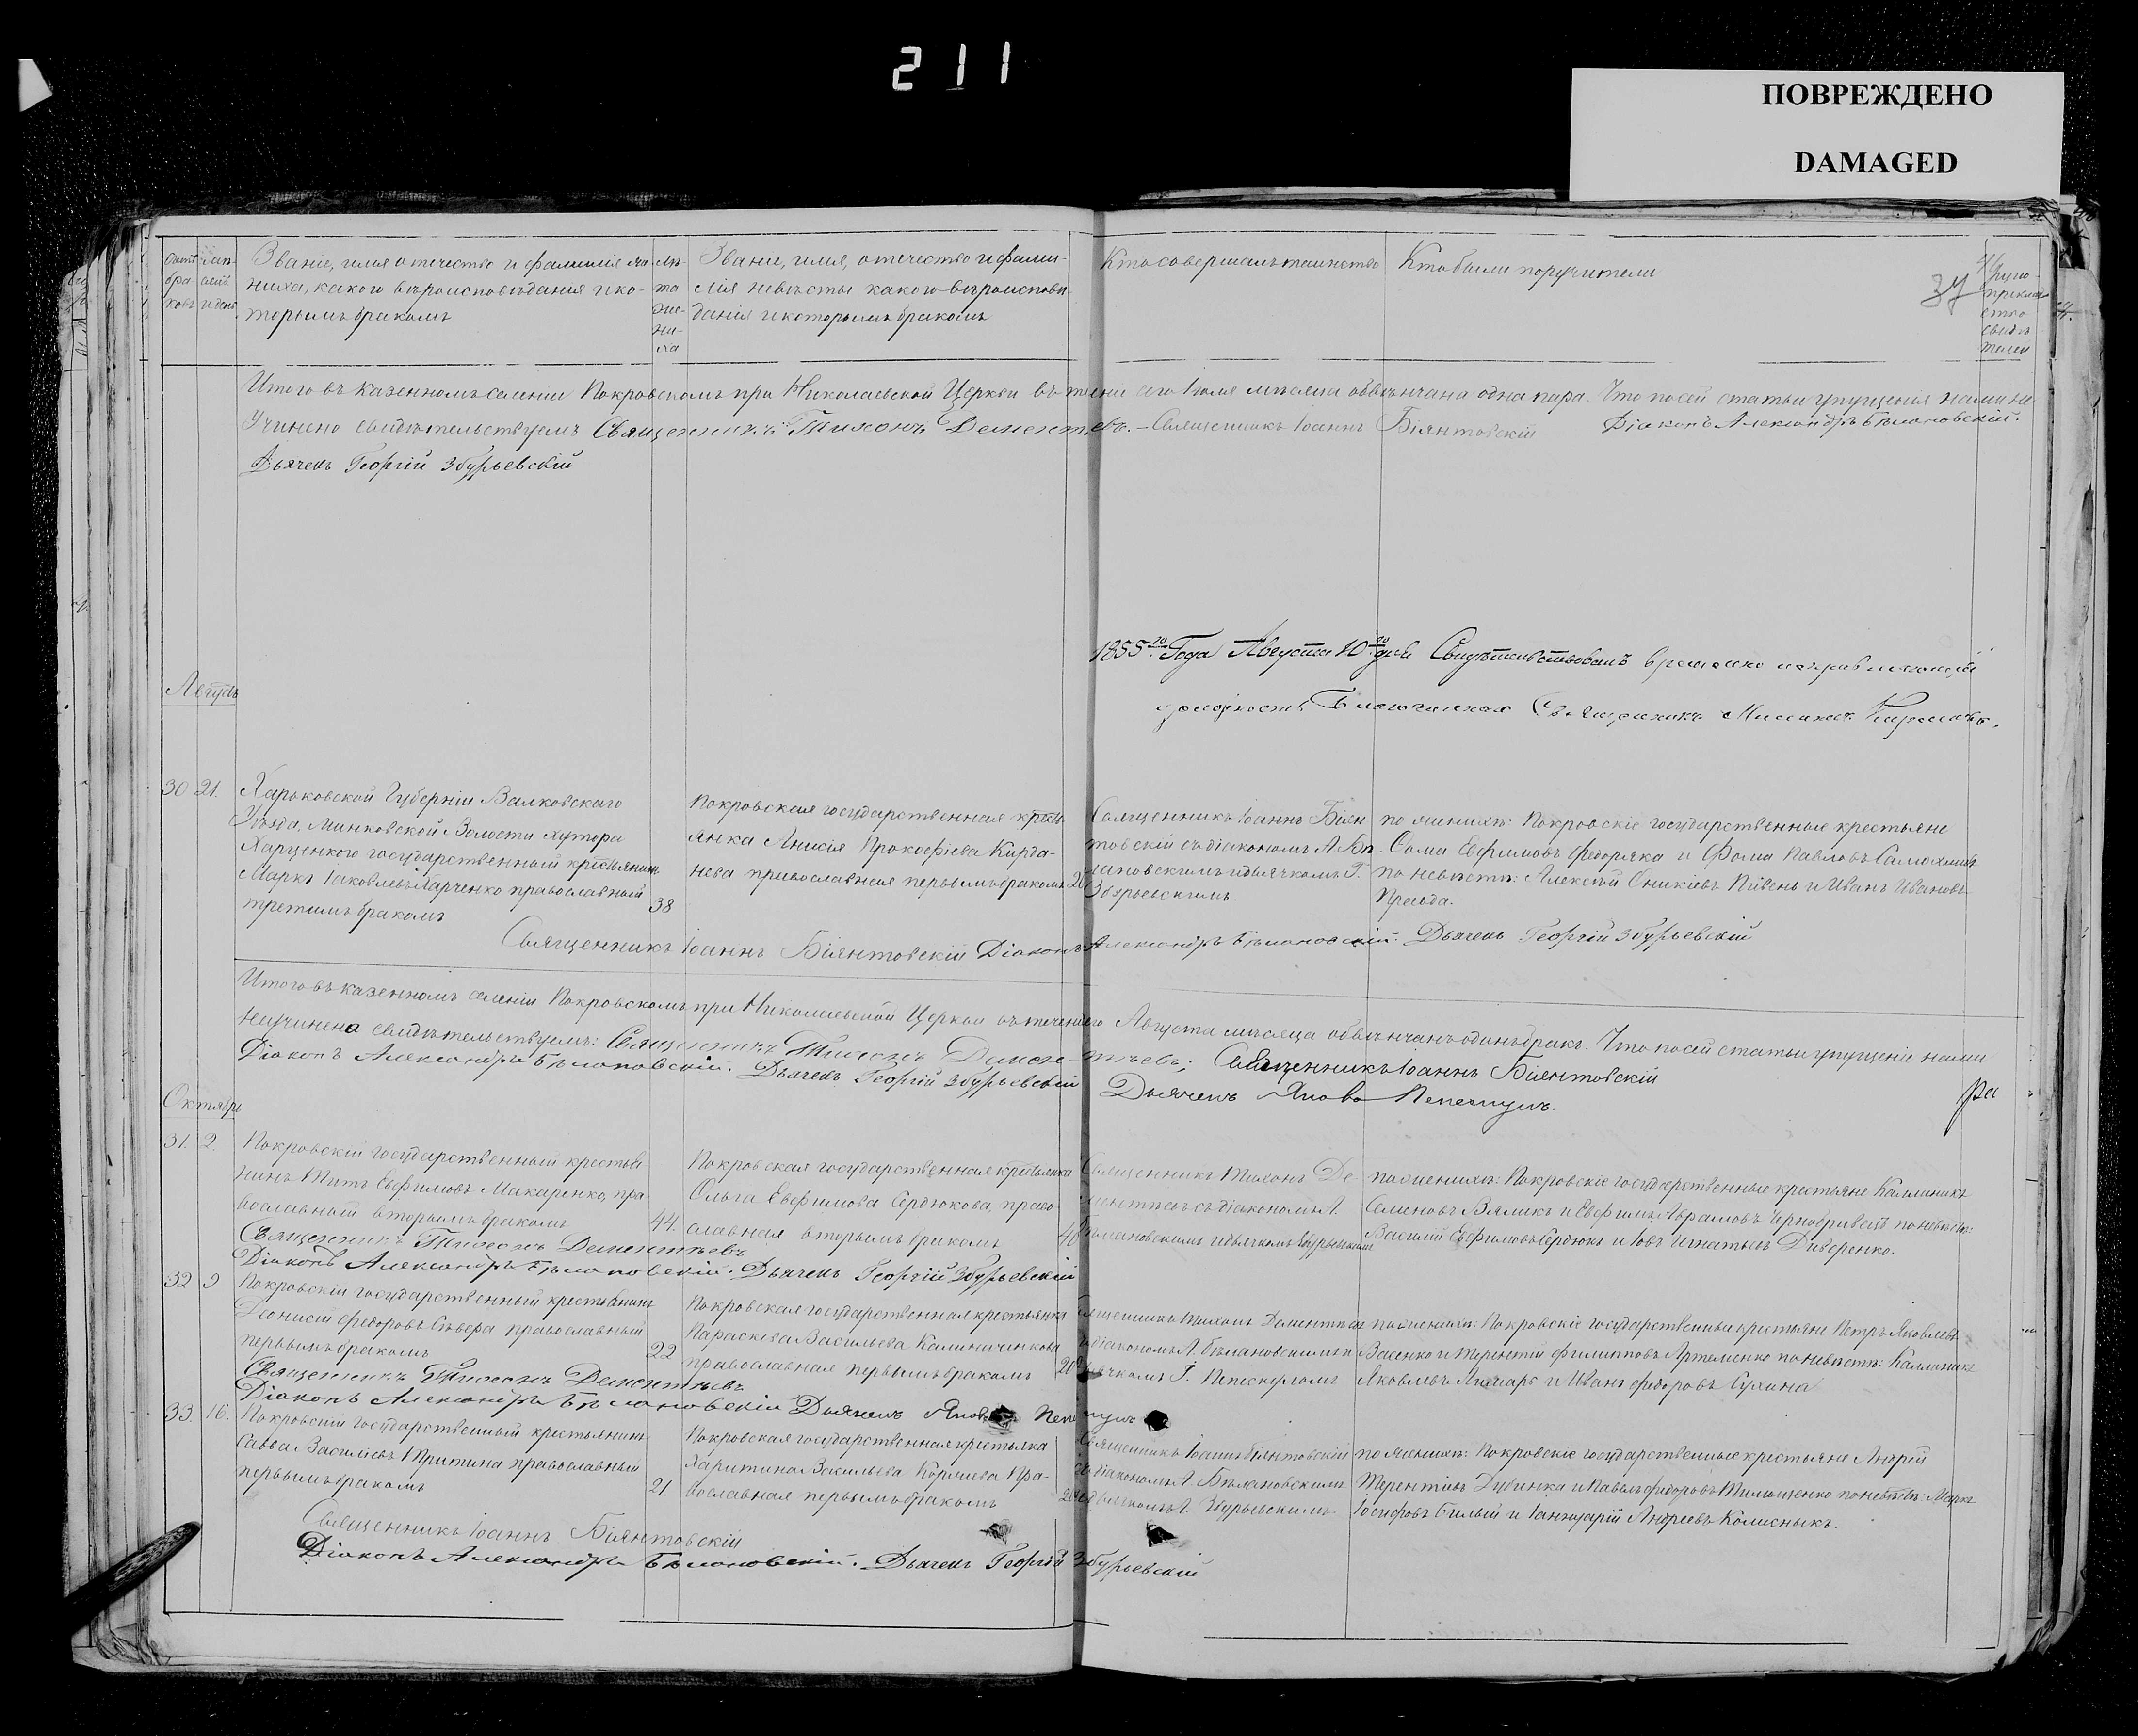 211
ПОВРЕЖДЕНО
DAMAGED
37
Званіе, имя отечество и фамилія же-
ниха, какого вѣроисповѣданія и ко-
торымъ бракомъ
Званіе, имя, отечество и фами-
лія невѣсты какого вѣроисповѣ
данія и которымъ бракомъ
Кто совершалъ таинство
Кто были поручители
Итого въ казенномъ селеніи Покровскомъ при Николаевской Церкви въ теченіе сего Іюля мѣсяца обвѣнчана одна пара. Что по сей статьи упущенія нами не
учинено свидѣтельствуемъ Священникъ Тихонъ Дементьевъ. – Священникъ Іоаннъ Біянтовскій Діаконъ Александръ Бѣлановскій.
Дьячекъ Георгій Збурьевскій
1855го Года Августа 10го дня Свидѣтельствовалъ временно исправляющій
должность Благочиннаго Священникъ
Августъ
30 21.
Харьковской Губерніи Валковскаго
Уѣзда, Минковской Волости хутора
Харценкого государственный крестьянинъ
Маркъ Іаковлевъ Харченко православный
третимъ бракомъ
38
Покровская государственная кресть
янка Анисія Прокофіева Кирда-
нева православная первымъ бракомъ
Священникъ Іоаннъ Біян
товскій съ діакономъ А. Бѣ-
лановскимъ и дьячкомъ Г.
Збурьевскимъ.
по женихѣ: Покровскіе государственные крестьяне
Сома Евфимовъ Федоряка и Фома Павловъ
по невѣстѣ: Алексѣй Оникіевъ Пивень и Иванъ Ивановъ
Правда.
Священникъ Іоаннъ Біянтовскій Діаконъ Александръ Бѣлановскій. Дьячекъ Георгій Збурьевскій
Итого въ казенномъ селеніи Покровскомъ при Николаевской Церкви въ теченіе Августа мѣсяца обвѣнчанъ одинъ бракъ. Что по сей статьи упущеніе нами
неучинено свидѣтельствуемъ: Священникъ Тихонъ Дементьевъ; Священникъ Іоаннъ Біянтовскій
Діаконъ Александръ Бѣлановскій. Дьячекъ Георгій Збурьевскій
Дьячекъ Яковъ
Октября
31. 2.
Покровскій государственный крестья
нинъ Титъ Евфимовъ Макаренко, пра
вославный вторымъ бракомъ
44.
Покровская государственная крестьянка
Ольга Евфимова Сердюкова, право
славная вторымъ бракомъ
Священникъ Тихонъ Де-
ментьевъ съ діакономъ А.
Бѣлановскимъ и дьячкомъ Збурьевскимъ
по женихѣ: Покровскіе государственные крестьяне Каллиникъ
Семеновъ Вяликъ и Евфимъ Аврамовъ Чернобривецъ по невѣстѣ:
Василій Евфимовъ Сердюкъ и Іовъ Игнатьевъ Диверенко.
Священникъ Тихонъ Дементьевъ
Діаконъ Александръ Бѣлановскій. Дьячекъ Георгій Збурьевскій
32 9
Покровскій государственный крестьянинъ
Діонисій Федоровъ Сѣвера православный
первымъ бракомъ
22
Покровская государственная крестьянка
Параскева Васильева Калиниченкова
православная первымъ бракомъ
20
Священникъ Тихонъ Дементьевъ
діакономъ А. Бѣлановскимъ и
дьячкомъ
по женихѣ: Покровскіе государственные крестьяне Петръ Яковлевъ
Васенко и Терентій Филипповъ Артеменко по невѣстѣ: Каллиникъ
Яковлевъ и Иванъ Федоровъ Сухина
Священникъ Тихонъ Дементьевъ
Діаконъ Александръ Бѣлановскій Дьячекъ Яковъ
33. 16.
Покровскій государственный крестьянинъ
Савва Василіевъ Притина православный
первымъ бракомъ
21.
Покровская государственная крестьянка
Харитина Васильева Корміева Пра-
вославная первымъ бракомъ
Священникъ Іоаннъ Біянтовскій
съ діакономъ А. Бѣлановскимъ
и дьячкомъ Г. Збурьевскимъ
по женихѣ: Покровскіе государственные крестьяне Андрей
Терентіевъ Дубинка и Павелъ Федоровъ Тимошенко по невѣстѣ: Маркъ
Іосифовъ Билый и Іаннуарій Андреевъ Колисныкъ.
Священникъ Іоаннъ Біянтовскій
Діаконъ Александръ Бѣлановскій. Дьячекъ Георгій Збурьевскій